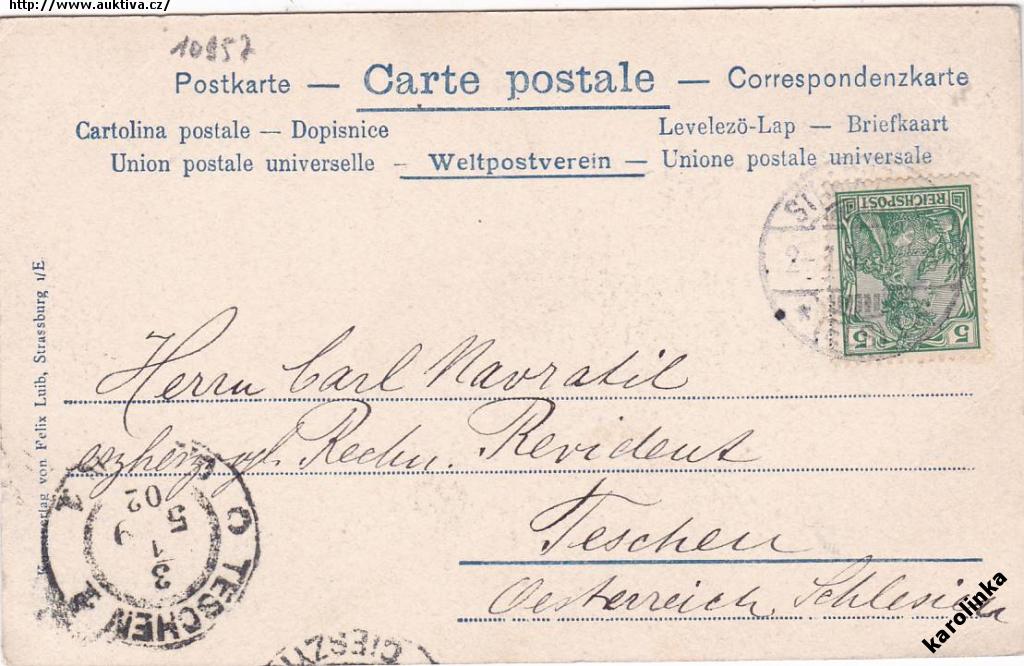 http://www.auktiva.cz/
10957
Postkarte — Carte postale — Correspondenzkarte
Cartolina postale — Dopisnice Levelezö-Lap — Briefkaart
Union postale universelle – Weltpostverein — Unione postale universale
REICHSPOST
5 5
Verlag von Felix Luib, Strassburg i/E.
Herrn Carl Navratil
erzherzogl. Rechn. Revident
Teschen
Oesterreich. Schlesien
TESCHEN
3/1
5
02
karolinka